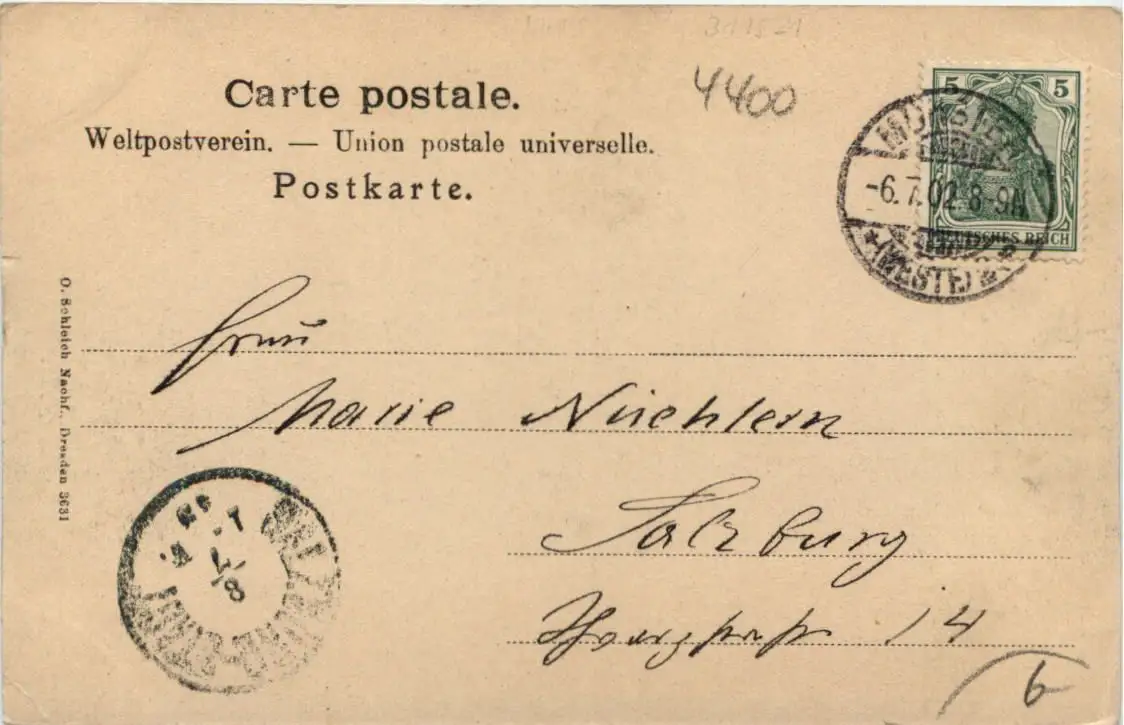 Carte postale.
Weltpostverein. — Union postale universelle.
Postkarte.
4400
5 5
DEUTSCHES REICH
MÜNSTER
-6.7.02. 8-9N
*(WESTF.)
O. Schleich Nachf., Dresden 3631
Frau
Marie
Salzburg
14
6